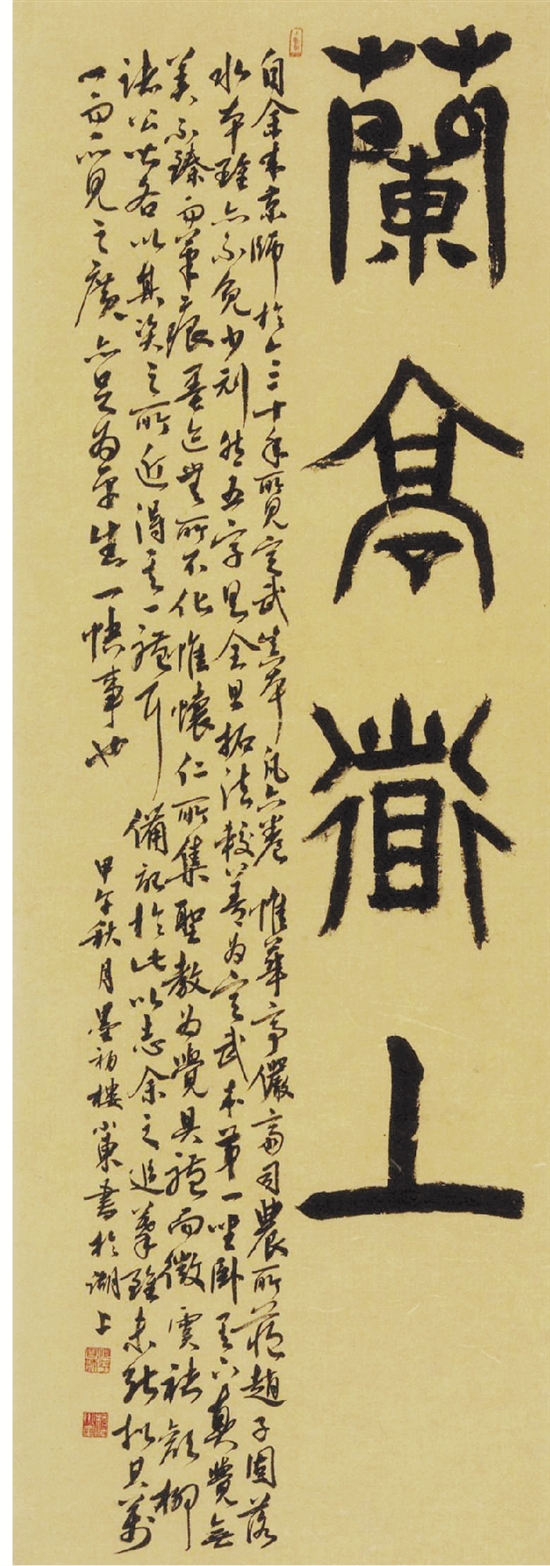 蘭亭道上
自余來京師於今三十年所見定武真本凡六卷惟華亭儼齋司農所藏趙子固落
水本雖亦不免少剜然五字具全且拓法較善為定武本第一坐臥其下真覺無
美不臻而筆痕墨迹無所不化惟懷仁所集聖教為覺具體而微虞褚顏柳
諸公皆各以其姿之所近得其一體耳備記於此以志余之追摹雖未能拟其萬
一而所見之廣亦足為平生一快事也
甲午秋月墨初樓小東書於湖上